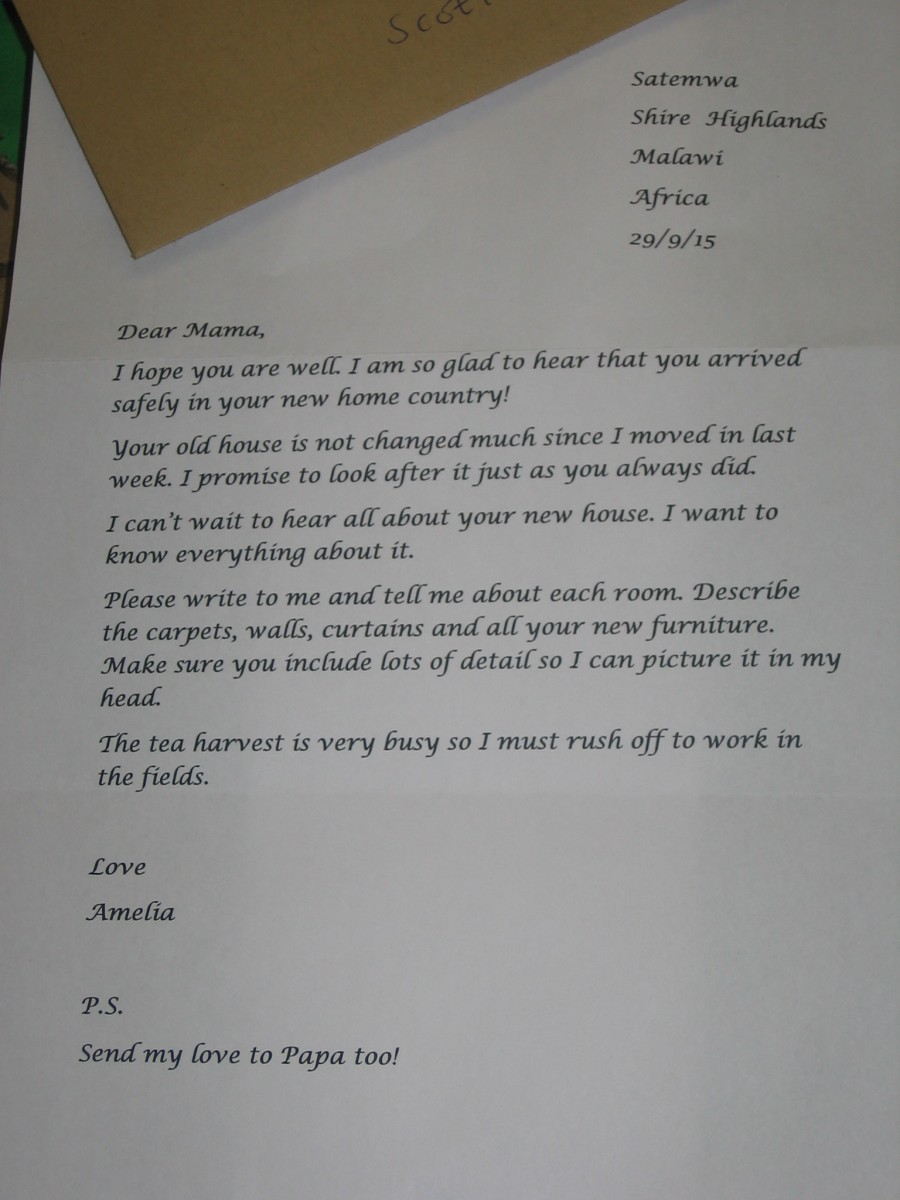 Satemwa
Shire Highlands
Malawi
Africa
29/9/15
Dear Mama,
I hope you are well. I am so glad to hear that you arrived
safely in your new home country!
Your old house is not changed much since I moved in last
week. I promise to look after it just as you always did.
I can't wait to hear all about your new house. I want to
know everything about it.
Please write to me and tell me about each room. Describe
the carpets, walls, curtains and all your new furniture.
Make sure you include lots of detail so I can picture it in my
head.
The tea harvest is very busy so I must rush off to work in
the fields.
Love
Amelia
P.S.
Send my love to Papa too!